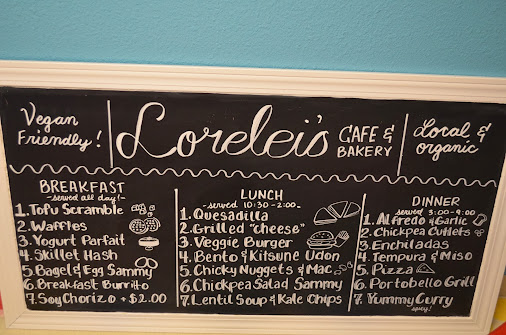 Vegan
Friendly!
Lorelei's
CAFE &
BAKERY
Local &
organic
BREAKFAST
~served all day!~
1. Tofu Scramble
2. Waffles
3. Yogurt Parfait
4. Skillet Hash
5. Bagel & Egg Sammy
6. Breakfast Burrito
7. Soy Chorizo + $2.00
LUNCH
~served 10:30-2:00~
1. Quesadilla
2. Grilled "cheese"
3. Veggie Burger
4. Bento & Kitsune Udon
5. Chicky Nuggets & Mac
6. Chickpea Salad Sammy
7. Lentil Soup & Kale Chips
DINNER
served 3:00-9:00
1. Alfredo & Garlic
2. Chickpea Cutlets
3. Enchiladas
4. Tempura & Miso
5. Pizza
6. Portobello Grill
7. Yummy Curry
spicy!